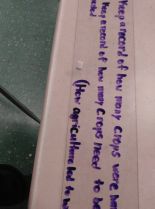 Keep a record of how many crops were
Keep a record of how many crops need to be
(How agriculture led to